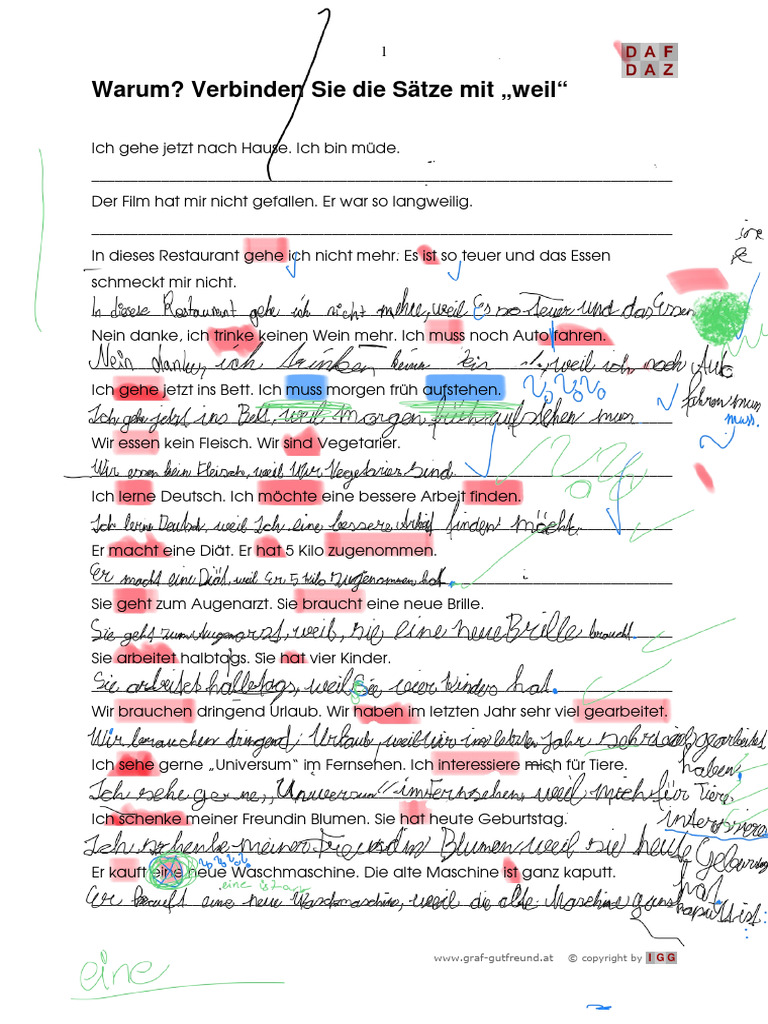 1
DAF
DAZ
Warum? Verbinden Sie die Sätze mit „weil“
Ich gehe jetzt nach Hause. Ich bin müde.
Der Film hat mir nicht gefallen. Er war so langweilig.
In dieses Restaurant gehe ich nicht mehr. Es ist so teuer und das Essen
schmeckt mir nicht.
In diese Restaurant gehe ich nicht mehr, weil Es so Teuer und das Essen
Nein danke, ich trinke keinen Wein mehr. Ich muss noch Auto fahren.
Nein danke, ich trinken keinen weil ich noch Auto
fahren muss
muss.
Ich gehe jetzt ins Bett. Ich muss morgen früh aufstehen.
Ich gehe jetzt ins Bett, weil morgen früh aufstehen muss
Wir essen kein Fleisch. Wir sind Vegetarier.
Wir essen kein Fleisch, weil Wir Vegetarier sind.
Ich lerne Deutsch. Ich möchte eine bessere Arbeit finden.
Ich lerne Deutsch, weil Ich eine bessere Arbeit finden möchte.
Er macht eine Diät. Er hat 5 Kilo zugenommen.
Er macht eine Diät, weil Er 5 kilo zugenommen hat.
Sie geht zum Augenarzt. Sie braucht eine neue Brille.
Sie geht zum Augenarzt, weil, sie eine neue Brille braucht.
Sie arbeitet halbtags. Sie hat vier Kinder.
Sie arbeitet halbtags, weil Sie vier Kinder hat.
Wir brauchen dringend Urlaub. Wir haben im letzten Jahr sehr viel gearbeitet.
Wir brauchen dringend, Urlaub, weil wir im letzten Jahr sehr viel gearbeitet
haben.
Ich sehe gerne „Universum“ im Fernsehen. Ich interessiere mich für Tiere.
Ich sehe gerne „Universum“ im Fernsehen weil mich für Tiere
interessiere
Ich schenke meiner Freundin Blumen. Sie hat heute Geburtstag.
Ich schenke meiner Freundin Blumen weil sie heute Geburtstag
hat.
Er kauft eine neue Waschmaschine. Die alte Maschine ist ganz kaputt.
eine
Er kauft eine neue Waschmaschine, weil die alte Maschine ganz
kaputt ist.
www.graf-gutfreund.at © copyright by IGG
eine